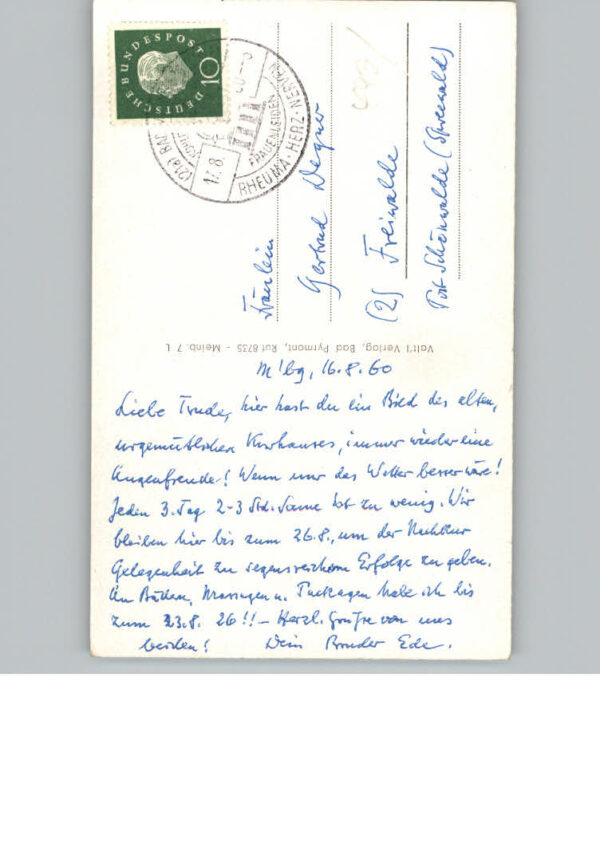 DEUTSCHE BUNDESPOST
10
(21a) BAD
17.8.
FRAUENLEIDEN
RHEUMA-HERZ-NERVEN
Fräulein
Gertrud Degner
(2) Freiwalde
Post Schönwalde (Spreewald)
Volt'l Verlag, Bad Pyrmont, Ruf 8735 - Meinb. 7 L
M'bg, 16.8.60
Liebe Trude, hier hast du ein Bild des alten,
urgemütlichen Kurhauses, immer wieder eine
Augenfreude! Wenn nur das Wetter besser wäre!
Jeden 3. Tag 2-3 Std. Sonne ist zu wenig. Wir
bleiben hier bis zum 26.8., um der Nachkur
Gelegenheit zu segensreichem Erfolge zu geben.
An Bädern, Massagen u. Packungen habe ich bis
zum 23.8. 26!! – Herzl. Grüße von uns
beiden! Dein Bruder Ede.